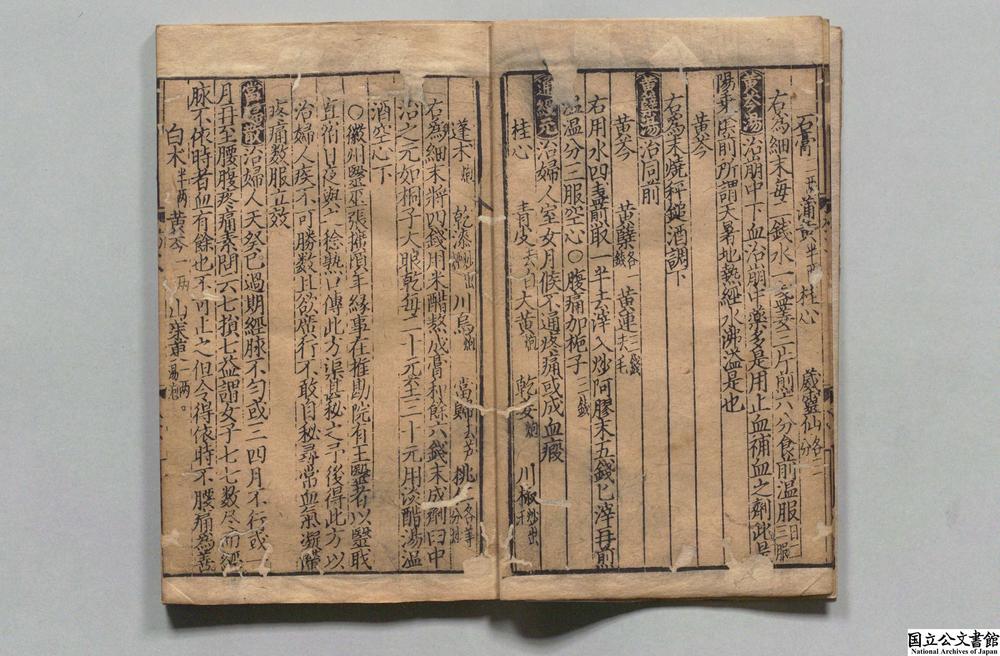 石膏一兩 蒲黃半兩 桂心 葳靈仙各二分
右為細末每一錢水一盞姜三片煎六分食前溫服日二三服
黃芩湯 治崩中下血治崩中藥多是用止血補血之劑此是
陽乘陰前所謂天暑地熱經水沸溢是也
黃芩
右為末燒秤錘酒調下
黃蘗湯 治同前
黃芩 黃蘗各一錢 黃連三錢去毛
右用水四盞煎取一半去滓入炒阿膠末五錢匕滓再煎
溫分三服空心〇腹痛加梔子三錢
通經元 治婦人室女月候不通疼痛或成血瘕
桂心 青皮去白 大黃炮 乾姜炮 川椒炒出汗
蓬朮炮 乾漆炒出烟 川烏炮 當歸去芦 桃
右為細末將四錢用米醋熬成膏和餘六錢末成劑臼中
治之元如桐子大眼乾每二十元至三十元用淡醋湯溫
酒空心下
〇徽州醫巫張擴頃年緣事在推勘院有王醫者以醫職
直宿日夕與之稔熟口傳此方渠甚秘之予後得此方以
治婦人疾不可勝數且欲廣行不敢自秘尋常血氣凝滯
疼痛數服立效
當歸散 治婦人天癸已過期經脉不勻或三四月不行或一
月再至腰腹疼痛素問云七損七益謂女子七七數尽而經
脉不依時者血有餘也不可止之但令得依時不腰痛為善
白朮半兩 黃芩一兩 山茱萸湯泡一兩
国立公文書館
National Archives of Japan